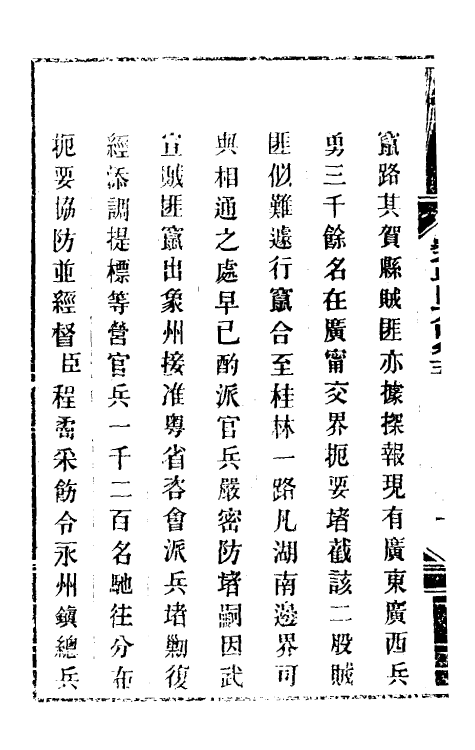 竄路其賀縣賊匪亦據探報現有廣東廣西兵
勇三千餘名在廣甯交界扼要堵截該二股賊
匪似難遽行竄合至桂林一路凡湖南邊界可
與相通之處早已酌派官兵嚴密防堵嗣因武
宣賊匪竄出象州接准粵省咨會派兵堵勦復
經添調提標等營官兵一千二百名馳往分布
扼要協防並經督臣程矞采飭令永州鎮總兵